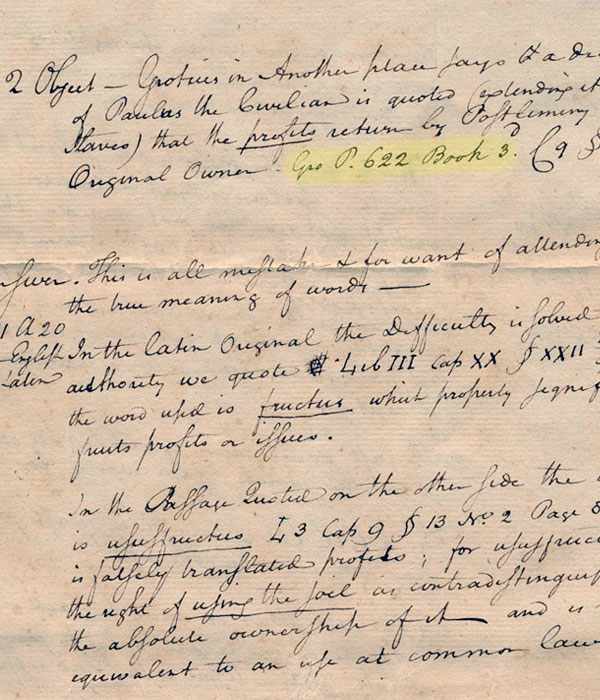 2 Object — Grotius in Another place says & a De
of Paulus the Civilian is quoted (extending it
Slaves) that the profits return by Postliminy
Original Owner - Gro P. 622 Book 3d. C 9 §
swer. This is all mistake & for want of attending
the true meaning of words —
1 A 20
English
Latin
In the Latin Original the Difficulty is solved
authority we quote Lib III Cap XX § XXII
the word used is fructus which properly signif
fruits profits or issues.
In the Passage Quoted on the other side the
is usufructus L 3 Cap 9 § 13 No. 2 Page 8
is falsely translated profits; for usufruc
the right of using the soil as contradistinguish
the absolute ownership of it — and is
equivalent to an use at common law